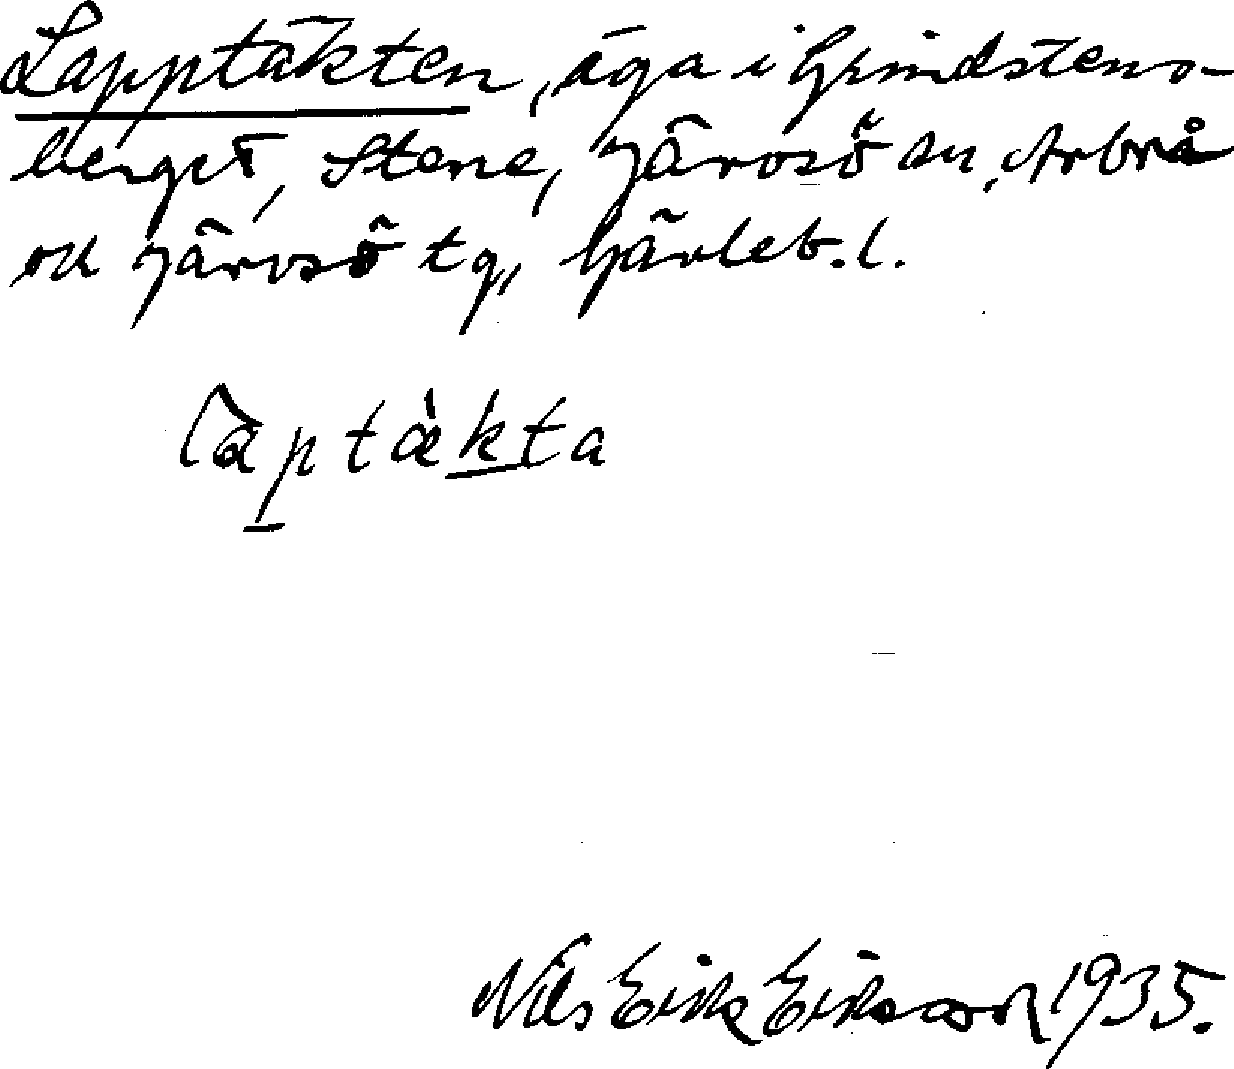 Lapptäkten, äga i Grindstens-
berget, Stene, Järvsö sn, Arbrå
och Järvsö tg, Gävleb. l.
làptæ̀kta
Nils Erik Eriksson 1935.